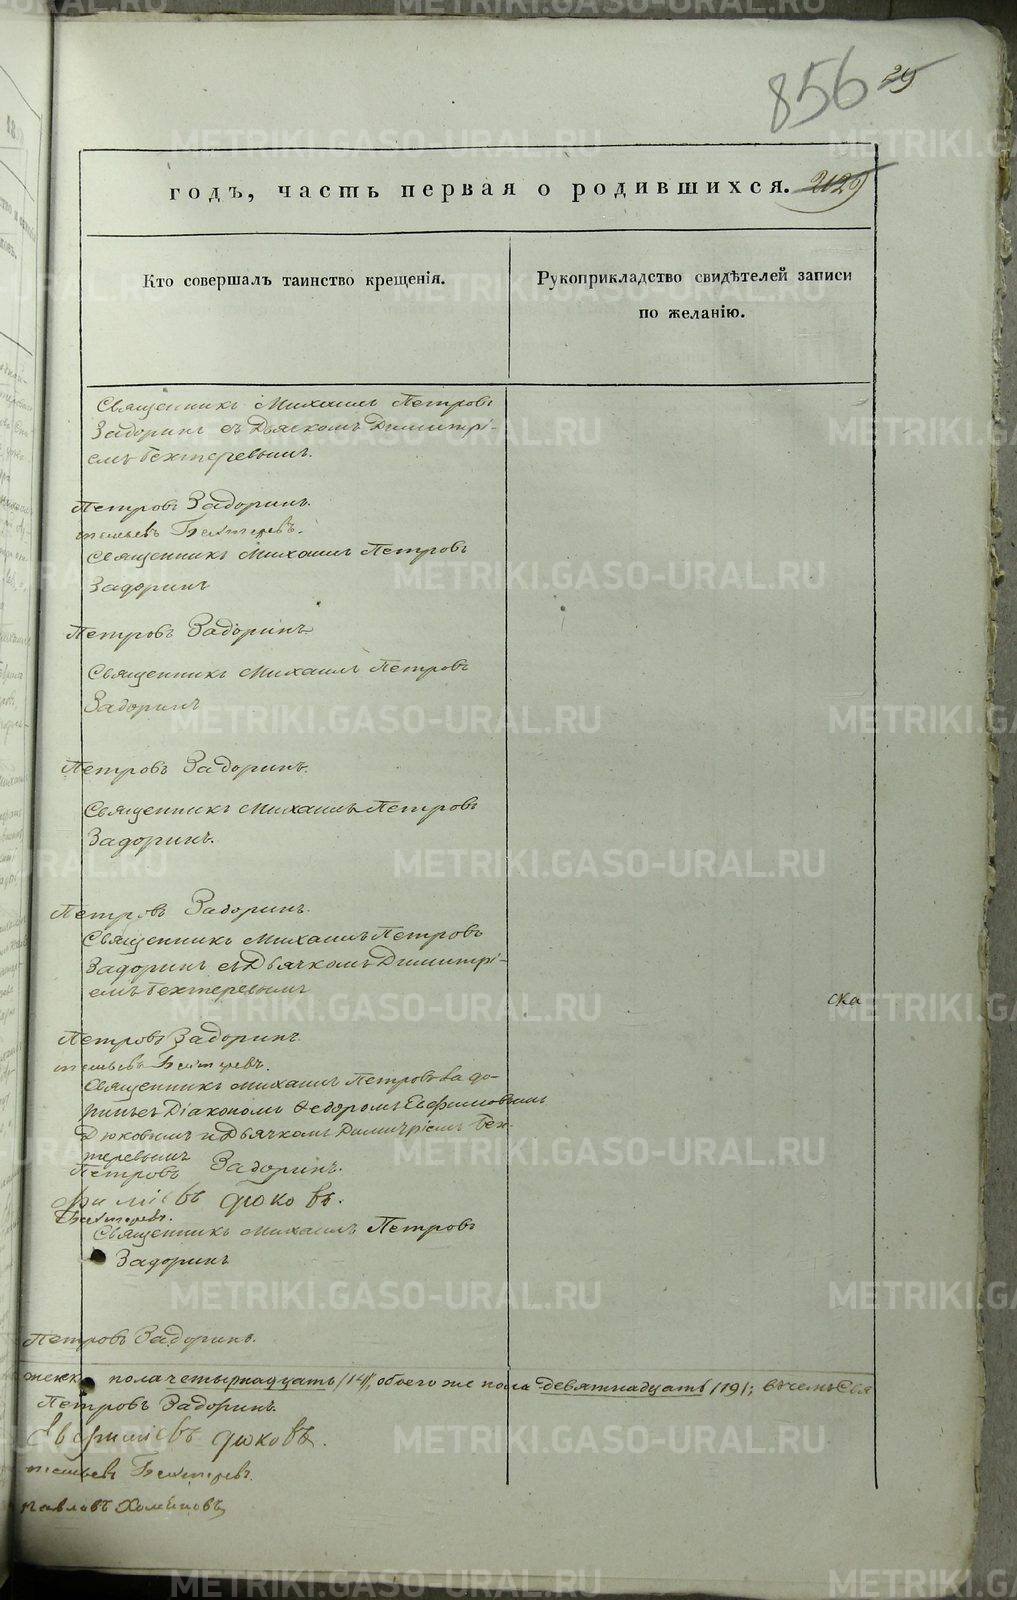 856 29
годъ, часть первая о родившихся. 2029
Кто совершалъ таинство крещенія.
Рукоприкладство свидѣтелей записи
по желанію.
Священникъ Михаилъ Петровъ
Задоринъ съ Дьячкомъ Димитрі-
емъ Бехтеревымъ.
Петровъ Задоринъ.
Бехтеревъ.
Священникъ Михаилъ Петровъ
Задоринъ
Петровъ Задоринъ
Священникъ Михаилъ Петровъ
Задоринъ
Петровъ Задоринъ.
Священникъ Михаилъ Петровъ
Задоринъ.
Петровъ Задоринъ.
Священникъ Михаилъ Петровъ
Задоринъ съ Дьячкомъ Димитрі-
емъ Бехтеревымъ
ска
Петровъ Задоринъ.
Бехтеревъ.
Священникъ Михаилъ Петровъ Задо-
ринъ съ Діакономъ Ѳедоромъ Евфимовымъ
Дюковымъ и Дьячкомъ Димитріемъ Бех-
теревымъ
Петровъ Задоринъ.
фиміевъ Дюковъ.
Бехтеревъ.
Священникъ Михаилъ Петровъ
Задоринъ
Петровъ Задоринъ.
женск пола четырнадцать /14/, обоего же пола девятнадцать /19/; въ чемъ Свя
Петровъ Задоринъ.
Евфиміевъ Дюковъ.
Бехтеревъ.
Павловъ
METRIKI.GASO-URAL.RU